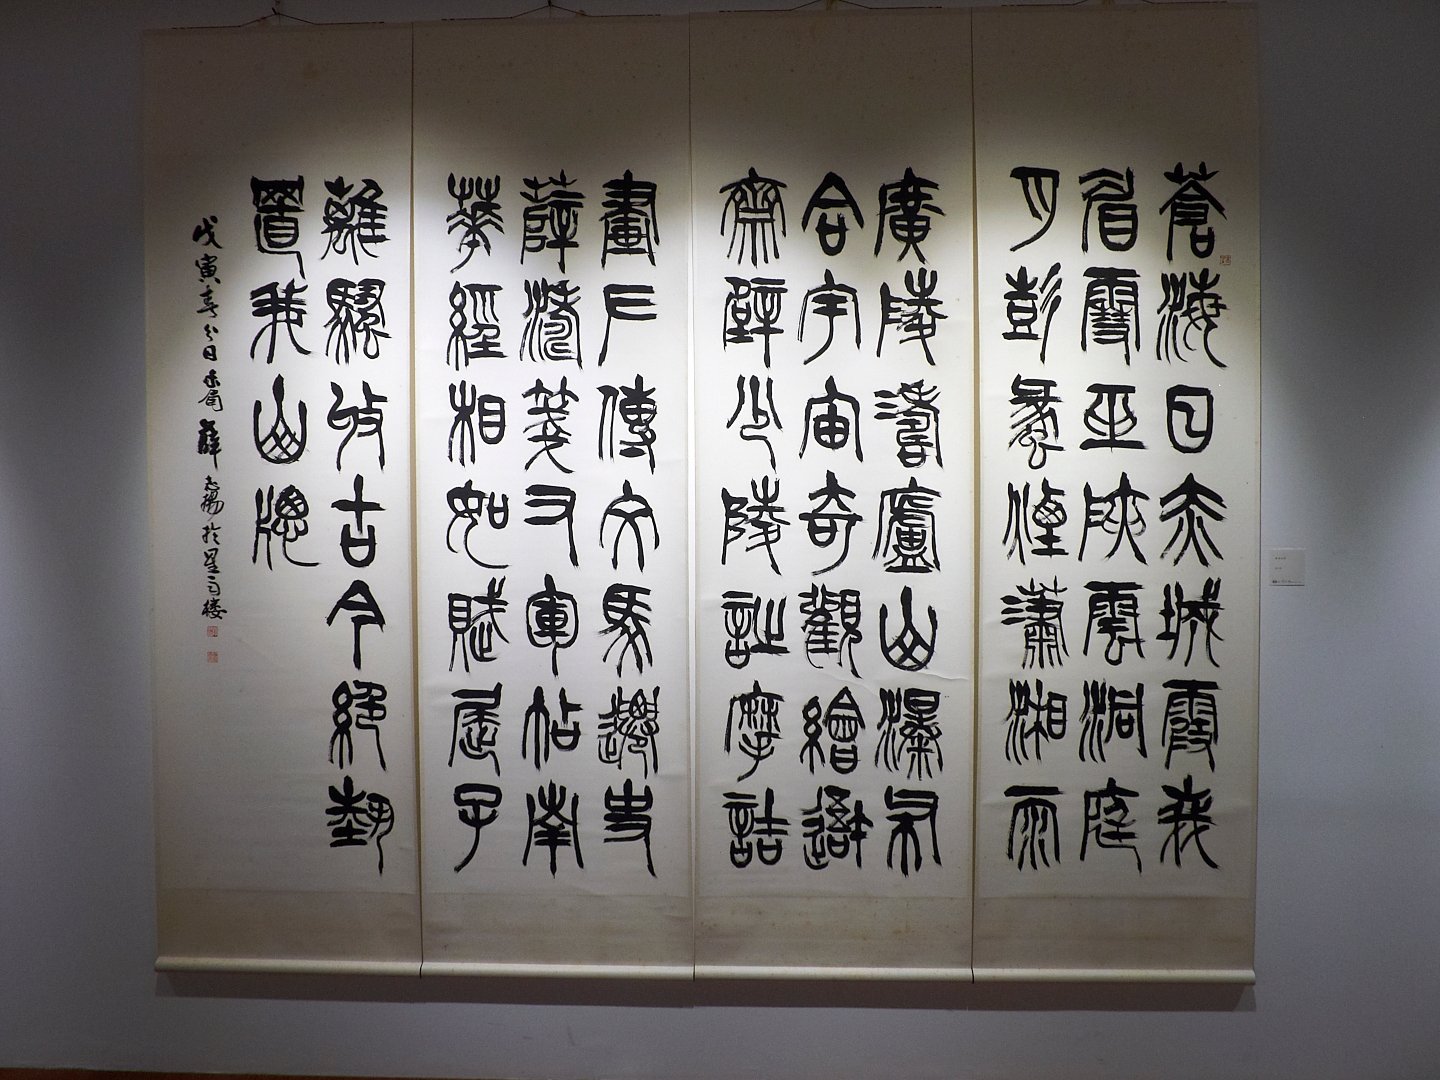 蒼海日赤城霞峨
眉雪巫峽雲洞庭
月彭蠡煙瀟湘雨
廣陵濤廬山瀑布
合宇宙奇觀繪吾
齋壁少陵詩摩詰
畫左傳文馬遷史
薛濤箋右軍帖南
華經相如賦屈子
離騷收古今絕藝
置我山窗
戊寅春分日 薛 揚於 樓